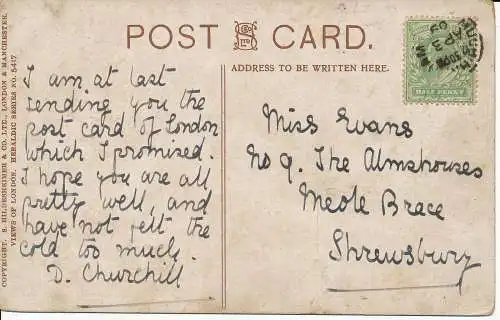 POST CARD.
ADDRESS TO BE WRITTEN HERE.
COPYRIGHT. S. HILDESHEIMER & CO. LTD., LONDON & MANCHESTER.
VIEWS OF LONDON, HERALDIC SERIES No. 5417
I am at last
sending you the
post card of London
which I promised.
I hope you are all
pretty well, and
have not felt the
cold too much.
D. Churchill
Miss Evans
No 9. The Almshouses
Meole Brace
Shrewsbury
HALF PENNY
AP 3